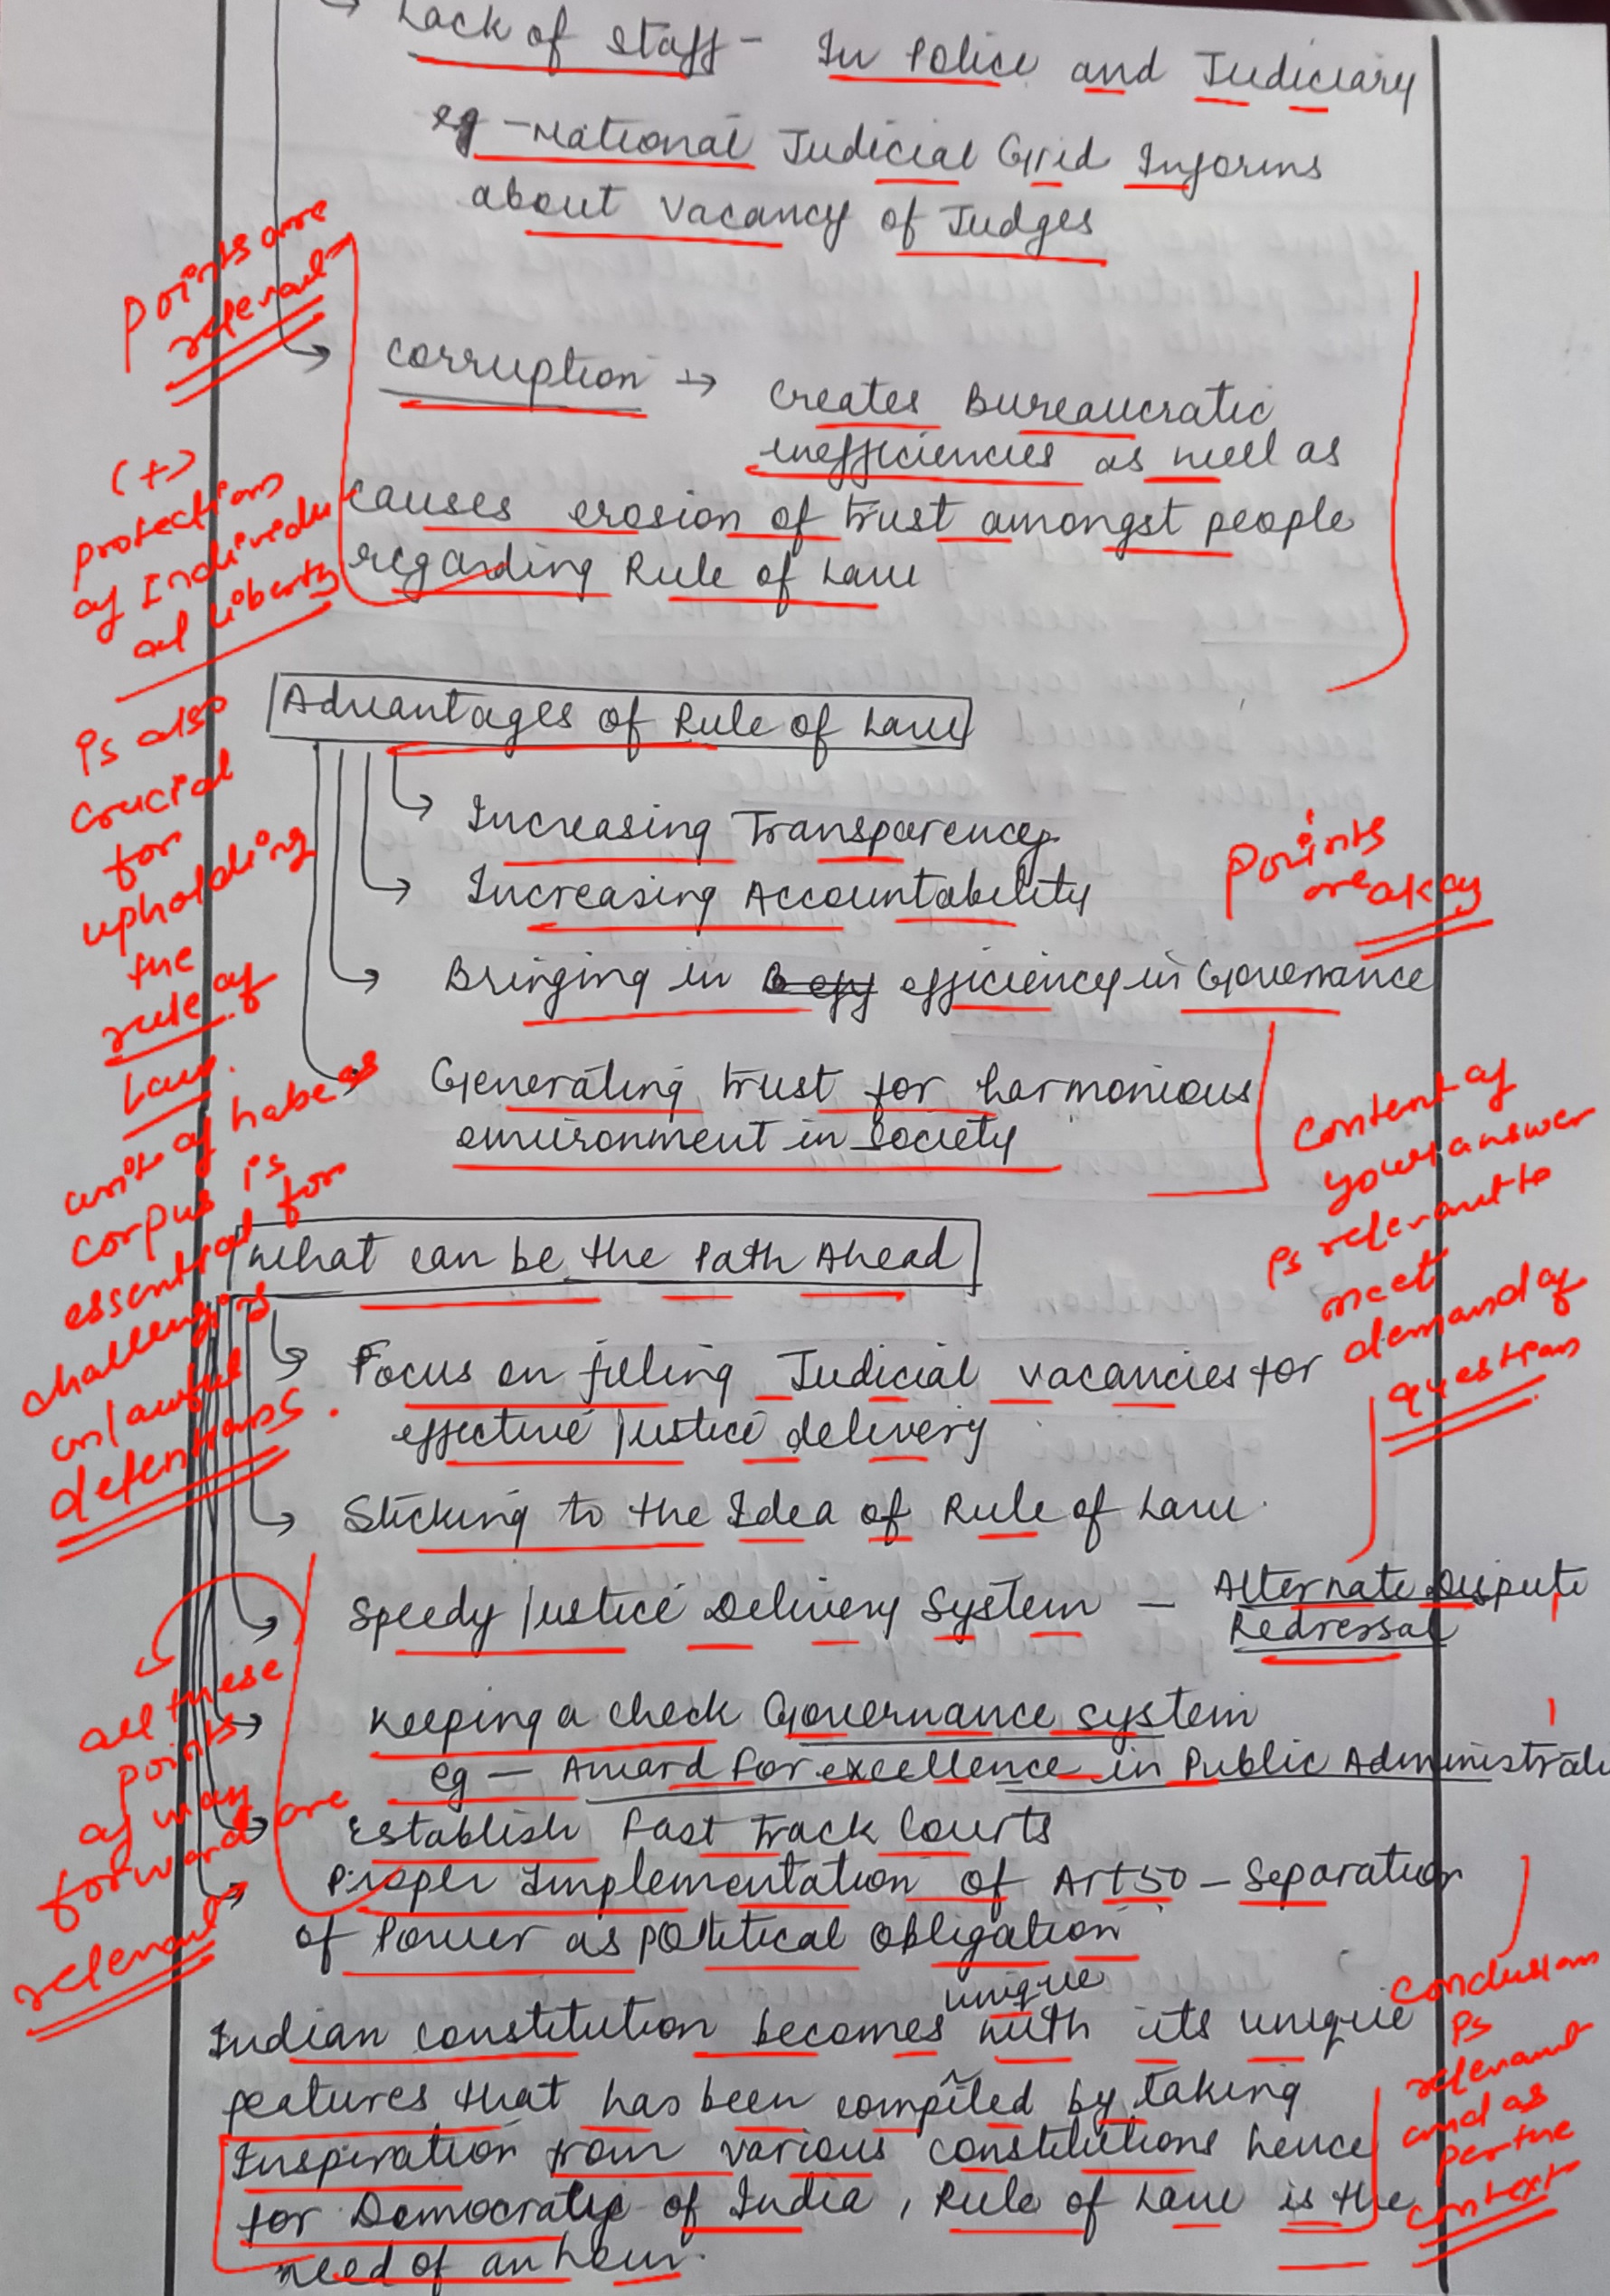 Lack of Staff - In Police and Judiciary
eg - National Judicial Grid Informs
about vacancy of Judges
Points are
relevant
Corruption → Creates Bureaucratic
inefficiencies as well as
causes erosion of trust amongst people
regarding Rule of Law
(+)
protection
of Individu
al liberty
is also
crucial
for
upholding
the
rule of
Law.
writ of habeas
corpus is
essential for
challenging
unlawful
detentions.
Advantages of Rule of Law
Increasing Transparency
Increasing Accountability
Bringing in efficiency in Governance
Generating trust for harmonious
environment in Society
Points
are okay
Content of
your answer
is relevant to
meet
demand of
question
What can be the Path Ahead
Focus on filling Judicial vacancies for
effective Justice delivery
Sticking to the Idea of Rule of Law.
Speedy Justice Delivery System - Alternate Dispute
Redressal
Keeping a check Governance system
eg - Award for excellence in Public Administrati
Establish Fast Track Courts
Proper Implementation of Art 50 - Separation
of Power as political obligation
all these
points
of way
forward are
relevant
Indian constitution becomes unique with its unique
features that has been compiled by taking
Inspiration from various constitutions hence
for Democratic of India, Rule of Law is the
need of an hour.
Conclusion
is
relevant
and as
per the
context